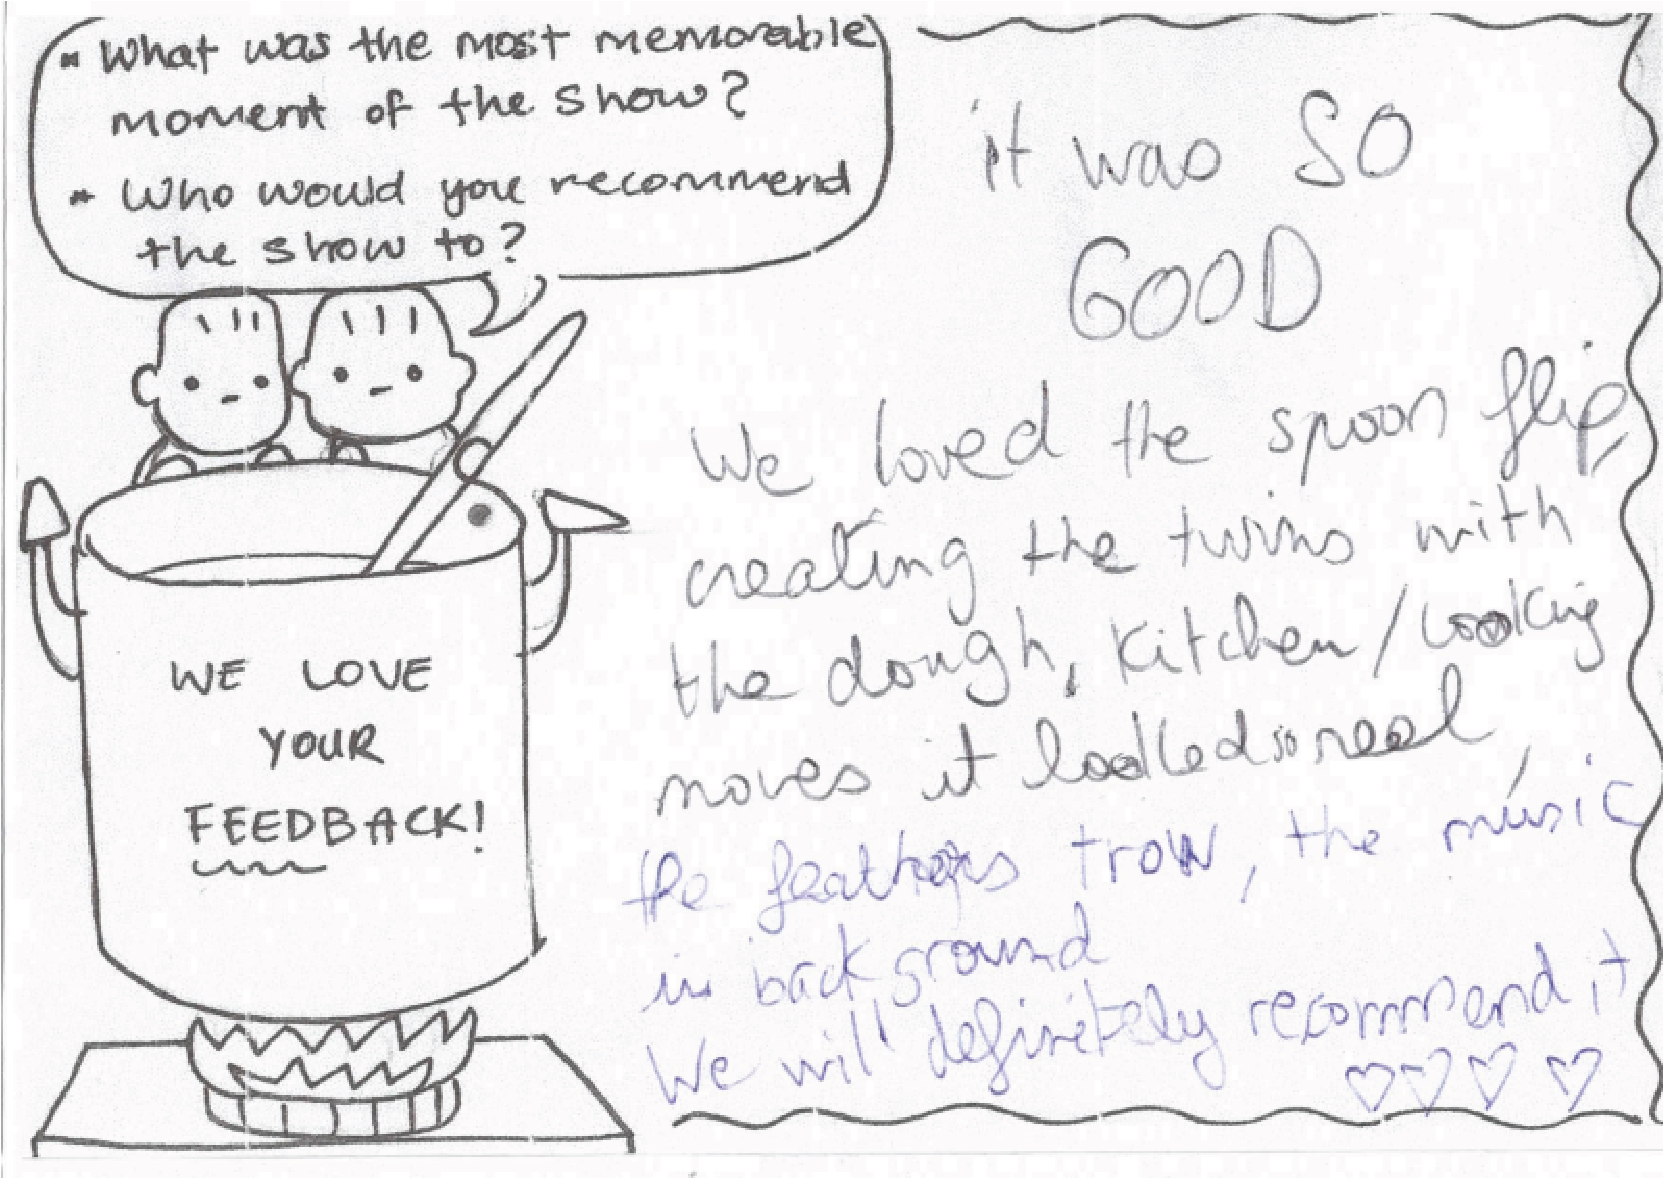 * What was the most memorable
moment of the show?
* Who would you recommend
the show to?
WE LOVE
YOUR
FEEDBACK!
it was SO
GOOD
We loved the spoon flip,
creating the twins with
the dough, kitchen/cooking
moves it looked so real,
the feathers trow, the music
in back ground
We will definitely recommend it
♡♡♡♡